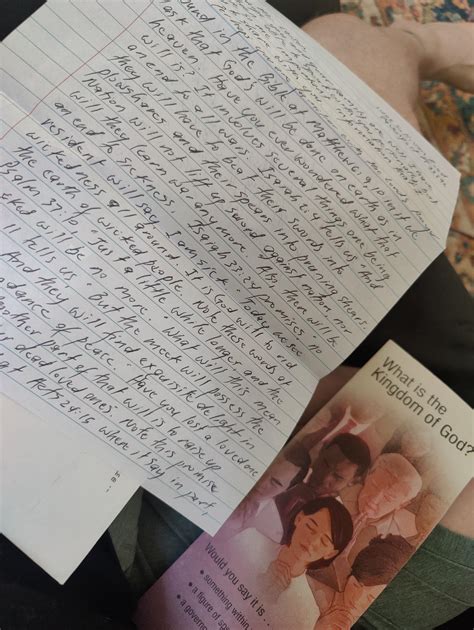 found in the Bible at Matthew 6:9,10 instruct
ask that God's will be done on earth as in
heaven. Have you ever wondered what that
will is? It involves several things one being
an end to all wars. Isaiah 2:4 tells us. And
they will have to beat their swords into
plowshares and their spears into pruning shears.
Nation will not lift up sword against nation nor
will they learn war anymore. Also, there will be
an end to sickness. Isaiah 33:24 promises. no
resident will say I am sick. Today we see
wickedness all around. It is God will to rid
the earth of wicked people. Note these words at
Psalm 37:10. Just a little while longer and the
wicked will be no more. What will this mean
tells us. But the meek will possess the
And they will find exquisite delight in
abundance of peace. Have you lost a loved one
Another part of that will is to raise up
dead loved ones. Note this promise
at Acts 24:15 where it say in part,
What is the
Kingdom of God?
Would you say it is . . .
• something within
• a figure of spe
• a govern